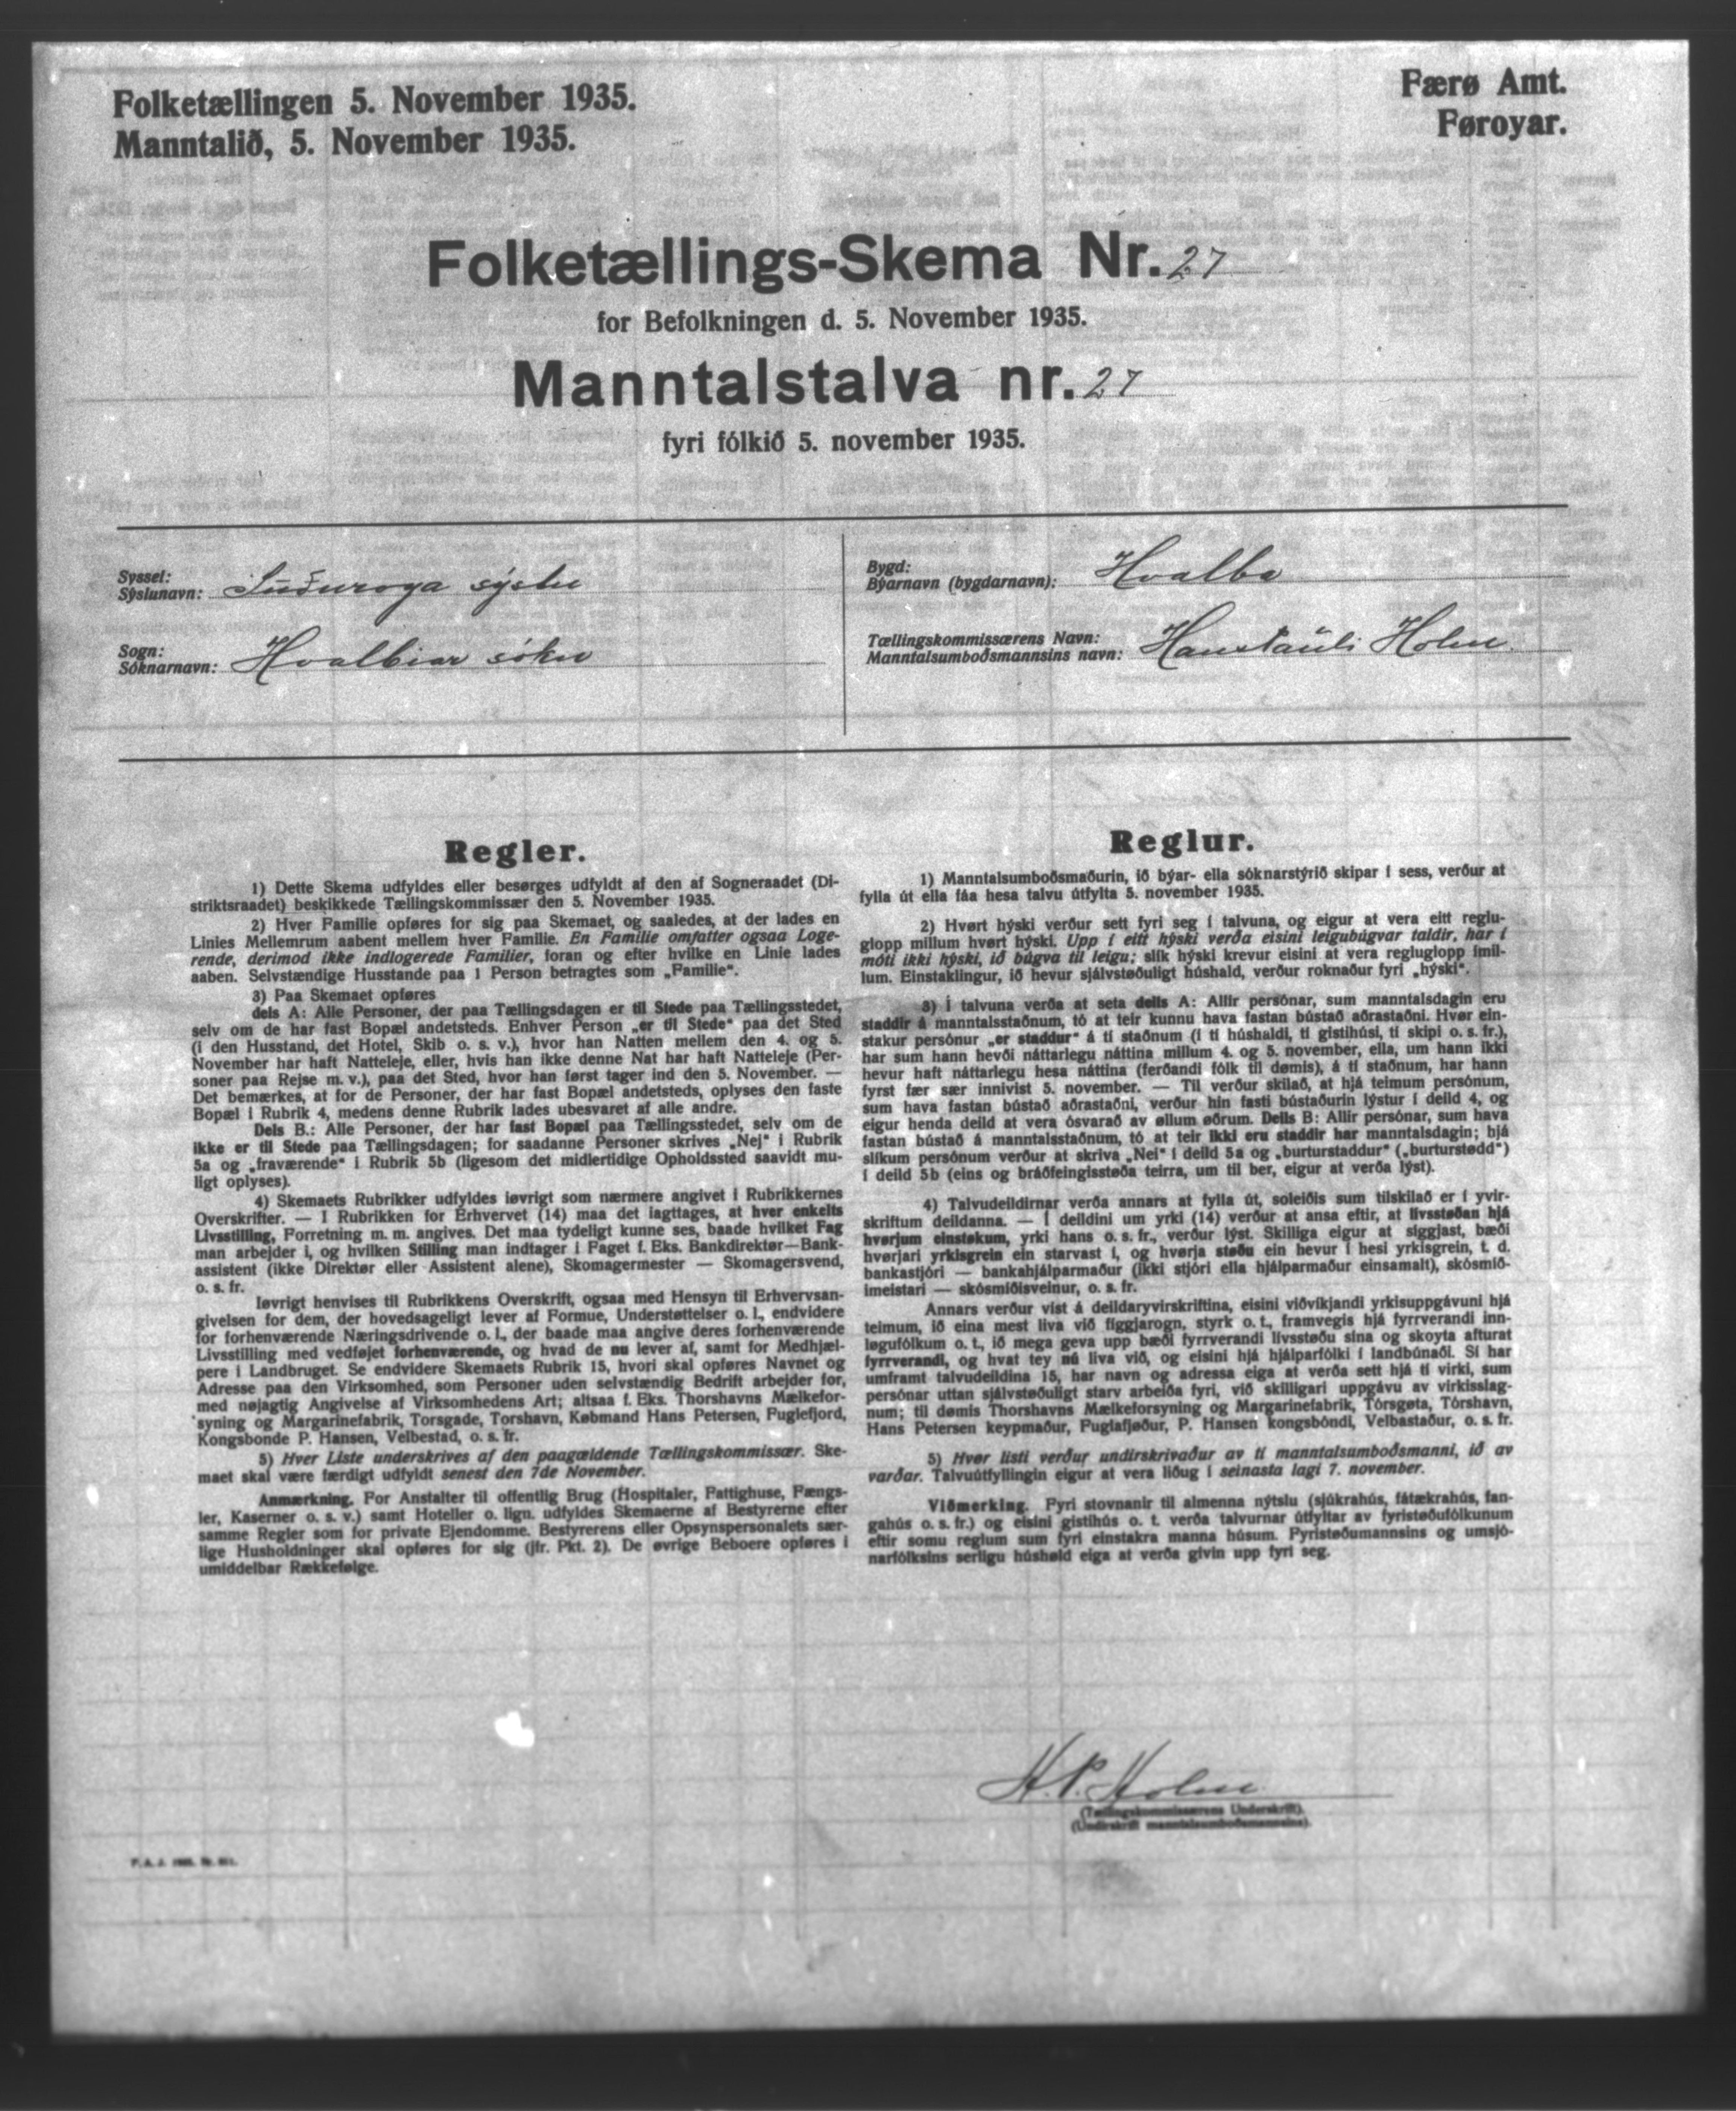 Folketællingen 5. November 1935.
Manntalið, 5. November 1935.
Færø Amt.
Føroyar.
Folketællings-Skema Nr. 27
for Befolkningen d. 5. November 1935.
Manntalstalva nr. 27
fyri fólkið 5. november 1935.
Syssel:
Sýslunavn: Suðuroya sýslu
Sogn:
Sóknarnavn: Hvalbiar sókn
Bygd:
Býarnavn (bygdarnavn): Hvalba
Tællingskommissærens Navn:
Manntalsumboðsmannsins navn: Hanspauli Holm.
Regler.
1) Dette Skema udfyldes eller besørges udfyldt af den af Sogneraadet (Di-
striktsraadet) beskikkede Tællingskommissær den 5. November 1935.
2) Hver Familie opføres for sig paa Skemaet, og saaledes, at der lades en
Linies Mellemrum aabent mellem hver Familie. En Familie omfatter ogsaa Loge-
rende, derimod ikke indlogerede Familier, foran og efter hvilke en Linie lades
aaben. Selvstændige Husstande paa 1 Person betragtes som „Familie“.
3) Paa Skemaet opføres
dels A: Alle Personer, der paa Tællingsdagen er til Stede paa Tællingsstedet,
selv om de har fast Bopæl andetsteds. Enhver Person „er til Stede“ paa det Sted
(i den Husstand, det Hotel, Skib o. s. v.), hvor han Natten mellem den 4. og 5.
November har haft Natteleje, eller, hvis han ikke denne Nat har haft Natteleje (Per-
soner paa Rejse m. v.), paa det Sted, hvor han først tager ind den 5. November. —
Det bemærkes, at for de Personer, der har fast Bopæl andetsteds, oplyses den faste
Bopæl i Rubrik 4, medens denne Rubrik lades ubesvaret af alle andre.
Dels B.: Alle Personer, der har fast Bopæl paa Tællingsstedet, selv om de
ikke er til Stede paa Tællingsdagen; for saadanne Personer skrives „Nej“ i Rubrik
5a og „fraværende“ i Rubrik 5b (ligesom det midlertidige Opholdssted saavidt mu-
ligt oplyses).
4) Skemaets Rubrikker udfyldes iøvrigt som nærmere angivet i Rubrikkernes
Overskrifter. — I Rubrikken for Erhvervet (14) maa det iagttages, at hver enkelts
Livsstilling, Forretning m. m. angives. Det maa tydeligt kunne ses, baade hvilket Fag
man arbejder i, og hvilken Stilling man indtager i Faget f. Eks. Bankdirektør—Bank-
assistent (ikke Direktør eller Assistent alene), Skomagermester — Skomagersvend,
o. s. fr.
Iøvrigt henvises til Rubrikkens Overskrift, ogsaa med Hensyn til Erhvervsan-
givelsen for dem, der hovedsageligt lever af Formue, Understøttelser o. l., endvidere
for forhenværende Næringsdrivende o. l., der baade maa angive deres forhenværende
Livsstilling med vedføjet forhenværende, og hvad de nu lever af, samt for Medhjæl-
pere i Landbruget. Se endvidere Skemaets Rubrik 15, hvori skal opføres Navnet og
Adresse paa den Virksomhed, som Personer uden selvstændig Bedrift arbejder for,
med nøjagtig Angivelse af Virksomhedens Art; altsaa f. Eks. Thorshavns Mælkefor-
syning og Margarinefabrik, Torsgade, Torshavn, Købmand Hans Petersen, Fuglefjord,
Kongsbonde P. Hansen, Velbestad, o. s. fr.
5) Hver Liste underskrives af den paagældende Tællingskommissær. Ske-
maet skal være færdigt udfyldt senest den 7de November.
Anmærkning. For Anstalter til offentlig Brug (Hospitaler, Fattighuse, Fængs-
ler, Kaserner o. s. v.) samt Hoteller o. lign. udfyldes Skemaerne af Bestyrerne efter
samme Regler som for private Ejendomme. Bestyrerens eller Opsynspersonalets sær-
lige Husholdninger skal opføres for sig (jfr. Pkt. 2). De øvrige Beboere opføres i
umiddelbar Rækkefølge.
Reglur.
1) Manntalsumboðsmaðurin, ið býar- ella sóknarstýrið skipar í sess, verður at
fylla út ella fáa hesa talvu útfylta 5. november 1935.
2) Hvørt hýski verður sett fyri seg í talvuna, og eigur at vera eitt reglu-
glopp millum hvørt hýski. Upp í eitt hýski verða eisini leigubúgvar taldir, har í
móti ikki hýski, ið búgva til leigu; slík hýski krevur eisini at vera regluglopp ímil-
lum. Einstaklingur, ið hevur sjálvstøðuligt húshald, verður roknaður fyri „hýski“.
3) Í talvuna verða at seta deils A: Allir persónar, sum manntalsdagin eru
staddir á manntalsstaðnum, tó at teir kunnu hava fastan bústað aðrastaðni. Hvør ein-
stakur persónur „er staddur“ á tí staðnum (í tí húshaldi, tí gistihúsi, tí skipi o. s. fr.),
har sum hann hevði náttarlegu náttina millum 4. og 5. november, ella, um hann ikki
hevur haft náttarlegu hesa náttina (ferðandi fólk til dømis), á tí staðnum, har hann
fyrst fær sær innivist 5. november. — Til verður skilað, at hjá teimum persónum,
sum hava fastan bústað aðrastaðni, verður hin fasti bústaðurin lýstur í deild 4, og
eigur henda deild at vera ósvarað av øllum øðrum. Deils B: Allir persónar, sum hava
fastan bústað á manntalsstaðnum, tó at teir ikki eru staddir har manntalsdagin; hjá
slíkum persónum verður at skriva „Nei“ í deild 5a og „burturstaddur“ („burturstødd“)
í deild 5b (eins og bráðfeingisstøða teirra, um til ber, eigur at verða lýst).
4) Talvudeildirnar verða annars at fylla út, soleiðis sum tilskilað er í yvir-
skriftum deildanna. — Í deildini um yrki (14) verður at ansa eftir, at livsstøðan hjá
hvørjum einstøkum, yrki hans o. s. fr., verður lýst. Skilliga eigur at siggjast, bæði
hvørjari yrkisgrein ein starvast í, og hvørja støðu ein hevur í hesi yrkisgrein, t. d.
bankastjóri — bankahjálparmaður (ikki stjóri ella hjálparmaður einsamalt), skósmíð-
imeistari — skósmíðisveinur, o. s. fr.
Annars verður víst á deildaryvirskriftina, eisini viðvíkjandi yrkisuppgávuni hjá
teimum, ið eina mest liva við figgjarogn, styrk o. t., framvegis hjá fyrrverandi inn-
løgufólkum o. t., ið mega geva upp bæði fyrrverandi livsstøðu sína og skoyta afturat
fyrrverandi, og hvat tey nú liva við, og eisini hjá hjálparfólki í landbúnaði. Sí har
umframt talvudeildina 15, har navn og adressa eiga at verða sett hjá tí virki, sum
persónar uttan sjálvstøðuligt starv arbeiða fyri, við skilligari uppgávu av virkisslag-
num; til dømis Thorshavns Mælkeforsyning og Margarinefabrik, Tórsgøta, Tórshavn,
Hans Petersen keypmaður, Fuglafjøður, P. Hansen kongsbóndi, Velbastaður, o. s. fr.
5) Hvør listi verður undirskrivaður av tí manntalsumboðsmanni, ið av
varðar. Talvuútfyllingin eigur at vera liðug í seinasta lagi 7. november.
Viðmerking. Fyri stovnanir til almenna nýtslu (sjúkrahús, fátækrahús, fan-
gahús o. s. fr.) og eisini gistihús o. t. verða talvurnar útfyltar av fyristøðufólkunum
eftir somu reglum sum fyri einstakra manna húsum. Fyristøðumannsins og umsjó-
narfólksins serligu húshøld eiga at verða givin upp fyri seg.
H. P. Holm
(Tællingskommissærens Underskrift).
(Undirskrift manntalsumboðsmannsins).